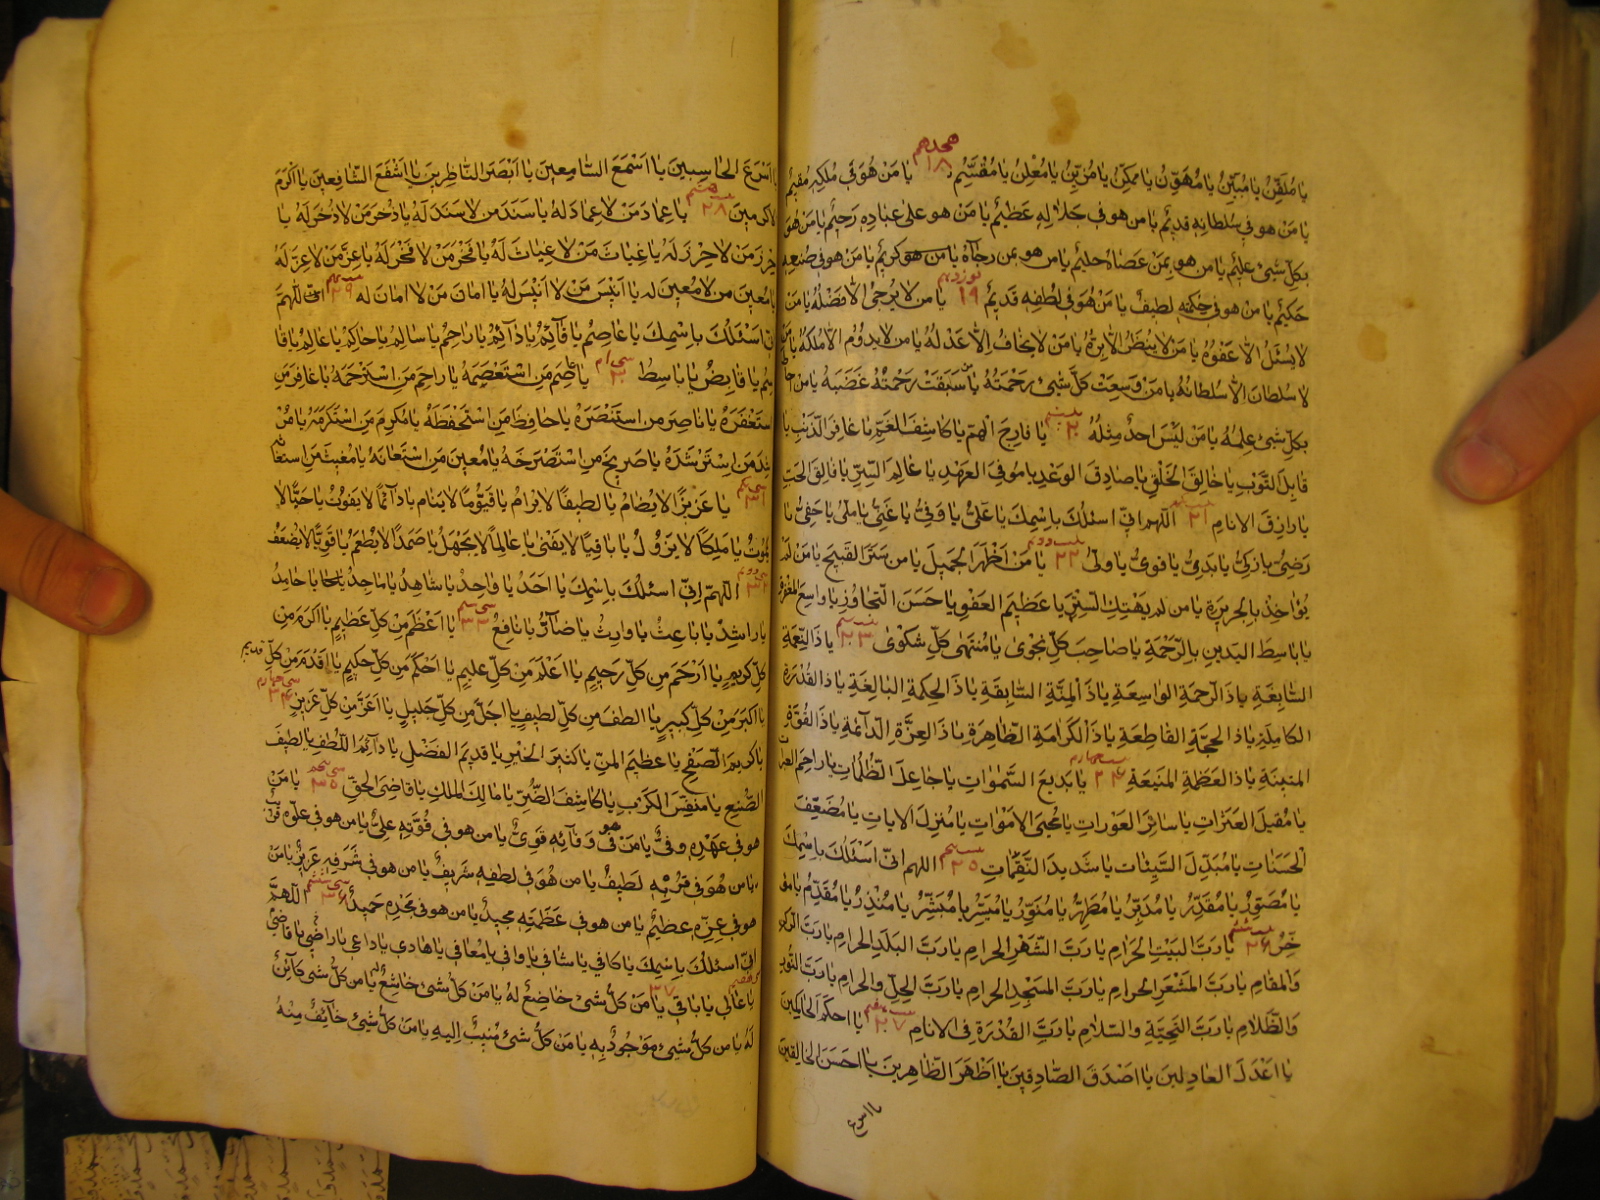 هجدهم
يا مُلَقِّنُ يا مُبَيِّنُ يا مُهَوِّنُ يا مُمَكِّنُ يا مُزَيِّنُ يا مُعْلِنُ يا مُقَسِّمُ ١٨ يا مَنْ هُوَ في مُلكِهِ مُقيمٌ
يا مَنْ هو في سُلطانِهِ قديمٌ يا من هو في جَلالِهِ عَظيمٌ يا مَنْ هو على عبادِهِ رَحيمٌ يا مَنْ هُوَ
بكلِّ شيءٍ عليمٌ يا من هو بمَنْ عَصاهُ حليمٌ يا من هو بمن رجاهُ كريمٌ يا مَن هو في صُنعِهِ
حَكيمٌ يا من هو في حِكمتِهِ لطيفٌ يا مَنْ هُوَ في لُطْفِهِ قَديمٌ نوزدهم ١٩ يا من لا يُرجىٰ الّا فَضْلُهُ يا مَنْ
لا يُسْئَلُ الّا عَفْوُهُ يا مَنْ لا يُنظَرُ الّا بِرُّهُ يا مَنْ لا يخافُ اِلّا عَدْلُهُ يا من لا يدوُمُ الّا مُلكُهُ يا مَنْ
لا سُلطانَ الّا سُلطانُهُ يا مَنْ وَسِعَتْ كلَّ شيءٍ رَحْمَتُهُ يا مَنْ سَبَقَتْ رَحْمَتُهُ غَضَبَهُ يا من حاط
بكلِّ شيءٍ عِلمُهُ يا مَنْ لَيْسَ احدٌ مِثلَهُ ٢٠ يا فارِجَ الْهمِّ يا كاشِفَ الغَمِّ يا غافِرَ الذّنبِ يا
قابِلَ التّوْبِ يا خالِقَ الْخَلْقِ يا صادِقَ الوعْدِ يا موُفيَ العَهْدِ يا عالِمَ السِّرِّ يا فالِقَ الحَبِّ
يا رازِقَ الانامِ ٢١ اللّهم انّي اسئلُكَ باسْمِكَ يا عَليُّ يا وَفيُّ يا غَنيُّ يا مليُّ يا حَفيُّ يا
رَضيُّ يا زكيُّ يا بَديُّ يا قويُّ يا وليُّ بيست دوم ٢٢ يا مَنْ اَظْهَرَ الْجَميلَ يا من سَتَرَ القَبيحَ يا مَنْ لَمْ
يُؤاخِذْ بالجريرَةِ يا من لم يَهْتِكِ السِّتْرَ يا عَظيمَ العَفْوِ يا حَسَنَ التّجاوُزِ يا واسِعَ المغفرة
يا باسِطَ اليَدينِ بالرّحْمَةِ يا صاحِبَ كلِّ نجْوىٰ يا مُنتَهىٰ كلِّ شكوىٰ ٢٣ يا ذَا النِّعْمَةِ
السّابِغَةِ يا ذَا الرّحمةِ الواسِعَةِ يا ذَا الْمِنَّةِ السّابِقَةِ يا ذَا الحِكمَةِ البالِغَةِ يا ذا القُدْرَةِ
الكامِلَةِ يا ذا الحُجَّةِ القاطِعَةِ يا ذَا الْكَرامَةِ الظّاهِرَةِ يا ذَا العِزَّةِ الدّائمَةِ يا ذَا القُوَّةِ
المتينةِ يا ذا العَظَمَةِ المنَيعَةِ ٢٤ يا بَديعَ السَّمٰواتِ يا جاعِلَ الظُّلُماتِ يا راحِمَ العبرات
يا مُقيلَ العَثَراتِ يا ساتِرَ العَوراتِ يا مُحْييَ الامَوْاتِ يا مُنزِلَ الاياتِ يا مُضَعِّفَ
الحَسَناتِ يا مُبَدِّلَ السَّيِّئاتِ يا شَديدَ النَّقِماتِ ٢٥ اللهم انّي اَسْئَلُكَ باسْمِكَ
يا مُصَوِّرُ يا مُقَدِّرُ يا مُدَبِّرُ يا مُطَهِّرُ يا مُنَوِّرُ يا مُيَسِّرُ يا مُبَشِّرُ يا مُنْذِرُ يا مُقَدِّمُ يا مؤ
خِّرُ ٢٦ يا رَبَّ البَيْتِ الحَرامِ يا رَبَّ الشّهْرِ الحرامِ يا رَبَّ البَلَدِ الحرامِ يا رَبَّ الرّكن
وَالمَقامِ يا رَبَّ المَشْعَرِ الحرامِ يا رَبَّ المسْجِدِ الحرامِ يا رَبَّ الحِلِّ والحرامِ يا رَبَّ النُّور
وَالظّلامِ يا رَبَّ التَحِيَّةِ والسّلامِ يا رَبَّ القُدْرَةِ في الانامِ ٢٧ يا احكَمَ الحاكِمينَ
يا اعْدَلَ العادِلينَ يا اصْدَقَ الصّادِقينَ يا اَطْهَرَ الطّاهِرينَ يا احسَنَ الخالِقينَ
يا اسرع
يا اَسْرَعَ الحاسِبينَ يا اَسْمَعَ السّامِعينَ يا اَبْصَرَ النّاظِرينَ يا اَشْفَعَ الشّافِعينَ يا اَكْرَمَ
الاكرمينَ ٢٨ يا عِمادَ مَنْ لا عِمادَ لهُ يا سَنَدَ من لا سَنَدَ لَهُ يا ذُخْرَ مَنْ لا ذُخْرَ لَهُ يا
حِرْزَ مَنْ لا حِرْزَ لَهُ يا غِياثَ مَنْ لا غِياثَ لَهُ يا فَخْرَ مَنْ لا فَخْرَ لَهُ يا عِزَّ مَنْ لا عِزَّ لَهُ
يا مُعينَ من لا مُعينَ له يا اَنيسَ مَنْ لا اَنيسَ لهُ يا امانَ مَنْ لا امانَ له ٢٩ اللّهمَّ
انّي اَسْئَلُكَ باسْمِكَ يا عاصِمُ يا قائِمُ يا دائِمُ يا راحِمُ يا سالِمُ يا حاكِمُ يا عالِمُ يا قا
سِمُ يا قابِضُ يا باسِطُ سي ام ٣٠ يا عاصِمَ مَنِ اسْتَعْصَمَهُ يا راحِمَ مَنِ اسْتَرْحَمَهُ يا غافِرَ مَنِ
استَغْفَرَهُ يا ناصِرَ منِ اسْتَنْصَرَهُ يا حافِظَ مَنِ اسْتَحْفَظَهُ يا مُكرِمَ مَنِ اسْتَكرَمَهُ يا مُرْ
شِدَ مَنِ اسْتَرْشَدَهُ يا صَريخَ مَنِ اسْتَصْرَخَهُ يا مُعينَ مَنِ اسْتَعانَهُ يا مُغيثَ مَنِ استغاثه
٣١ يا عَزيزًا لا يُضامُ يا لطيفًا لا يُرامُ يا قَيّوُمًا لا يَنام يا دائمًا لا يَفوُتُ يا حَيًّا لا
يَموتُ يا مَلِكًا لا يَزوُلُ يا باقِيًا لا يَفْنىٰ يا عالِمًا لا يَجْهَلُ يا صَمَدًا لا يُطْعَمُ يا قَوِيًّا لا يَضْعَفُ
٣٢ اللّهمّ اِنّي اسئلُكَ باسْمِكَ يا احَدُ يا واحِدُ يا شاهِدُ يا ماجِدُ يا حامِدُ
يا راشِدُ يا باعِثُ يا وارِثُ يا ضارُّ يا نافِعُ ٣٣ يا اَعْظَمَ مِنْ كلِّ عَظيمٍ يا اكرَمَ مِنْ
كلِّ كريمٍ يا اَرْحَمَ مِن كلِّ رَحيمٍ يا اعْلَمَ مِنْ كلِّ عليمٍ يا احْكَمَ مِن كلِّ حكيمٍ يا اقْدَمَ مِنْ كلِّ قديم
يا اكْبَرَ مِنْ كلِّ كبيرٍ يا الطفَ مِن كلِّ لطيفٍ يا اجَلَّ مِن كلِّ جَليلٍ يا اعَزَّ مِن كلِّ عَزيزٍ سي چهارم ٣٤
يا كريمَ الصّفْحِ يا عظيمَ المنِّ يا كثيرَ الخيْرِ يا قديمَ الفَضْلِ يا دائِمَ اللّطفِ يا لطيفَ
الصُّنعِ يا مُنَفِّسَ الكَرْبِ يا كاشِفَ الضُّرِّ يا مالِكَ الملكِ يا قاضيَ الحَقِّ سي پنجم ٣٥ يا مَنْ
هو في عَهْدِهِ وفيٌّ يا مَنْ هو في وَفائِهِ قَويٌّ يا من هو في قُوَّتِهِ عليٌّ يا من هو في علوّه قريب
يا من هُوَ في قُرْبِهِ لَطيفٌ يا من هُوَ في لطفِهِ شَريفٌ يا من هو في شَرَفِهِ عَزيزٌ يا مَنْ
هو في عِزِّهِ عظيمٌ يا من هو في عَظَمَتِهِ مجيدٌ يا من هو في مَجْدِهِ حَميدٌ سي ششم ٣٦ اللّهمَّ
انّي اسئلُكَ باسْمِكَ يا كافي يا شافي يا وافي يا مُعافي يا هادي يا داعي يا راضي يا قاضي
يا عالي يا باقي ٣٧ يا مَنْ كلُّ شيءٍ خاضِعٌ لَهُ يا مَنْ كلُّ شيءٍ خاشِعٌ له يا من كلُّ شيءٍ كائِنٌ
لَهُ يا من كلُّ شيءٍ مَوجُودٌ بِهِ يا مَنْ كلُّ شيءٍ مُنيبٌ اِليهِ يا مَنْ كلُّ شيءٍ خائِفٌ مِنْهُ